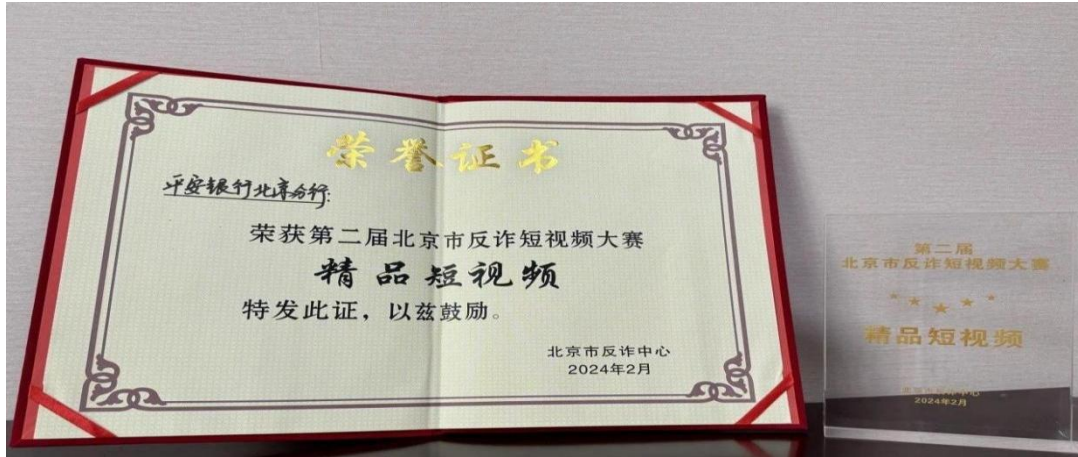 荣誉证书
平安银行北京分行:
荣获第二届北京市反诈短视频大赛
精品短视频
特发此证，以兹鼓励。
北京市反诈中心
2024年2月
第二届
北京市反诈短视频大赛
精品短视频
北京市反诈中心
2024年2月